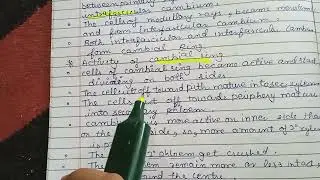 between primary
intrafascicular cambium.
The cells of medullary rays, became
and from interfascicular cambium.
Both intrafascicular and interfascicular cambium
form cambial ring.
Activity of cambial ring
cells of cambial ring became active and start
dividing on both sides
The cells cut off toward pith mature into sec. xylem
The cells cut off towards periphery mature
into secondary phloem
cambium is more active on inner side than
on the side, so, more amount of 2° xylem
The 2° phloem get crushed.
remain more or less intact,
around the centre